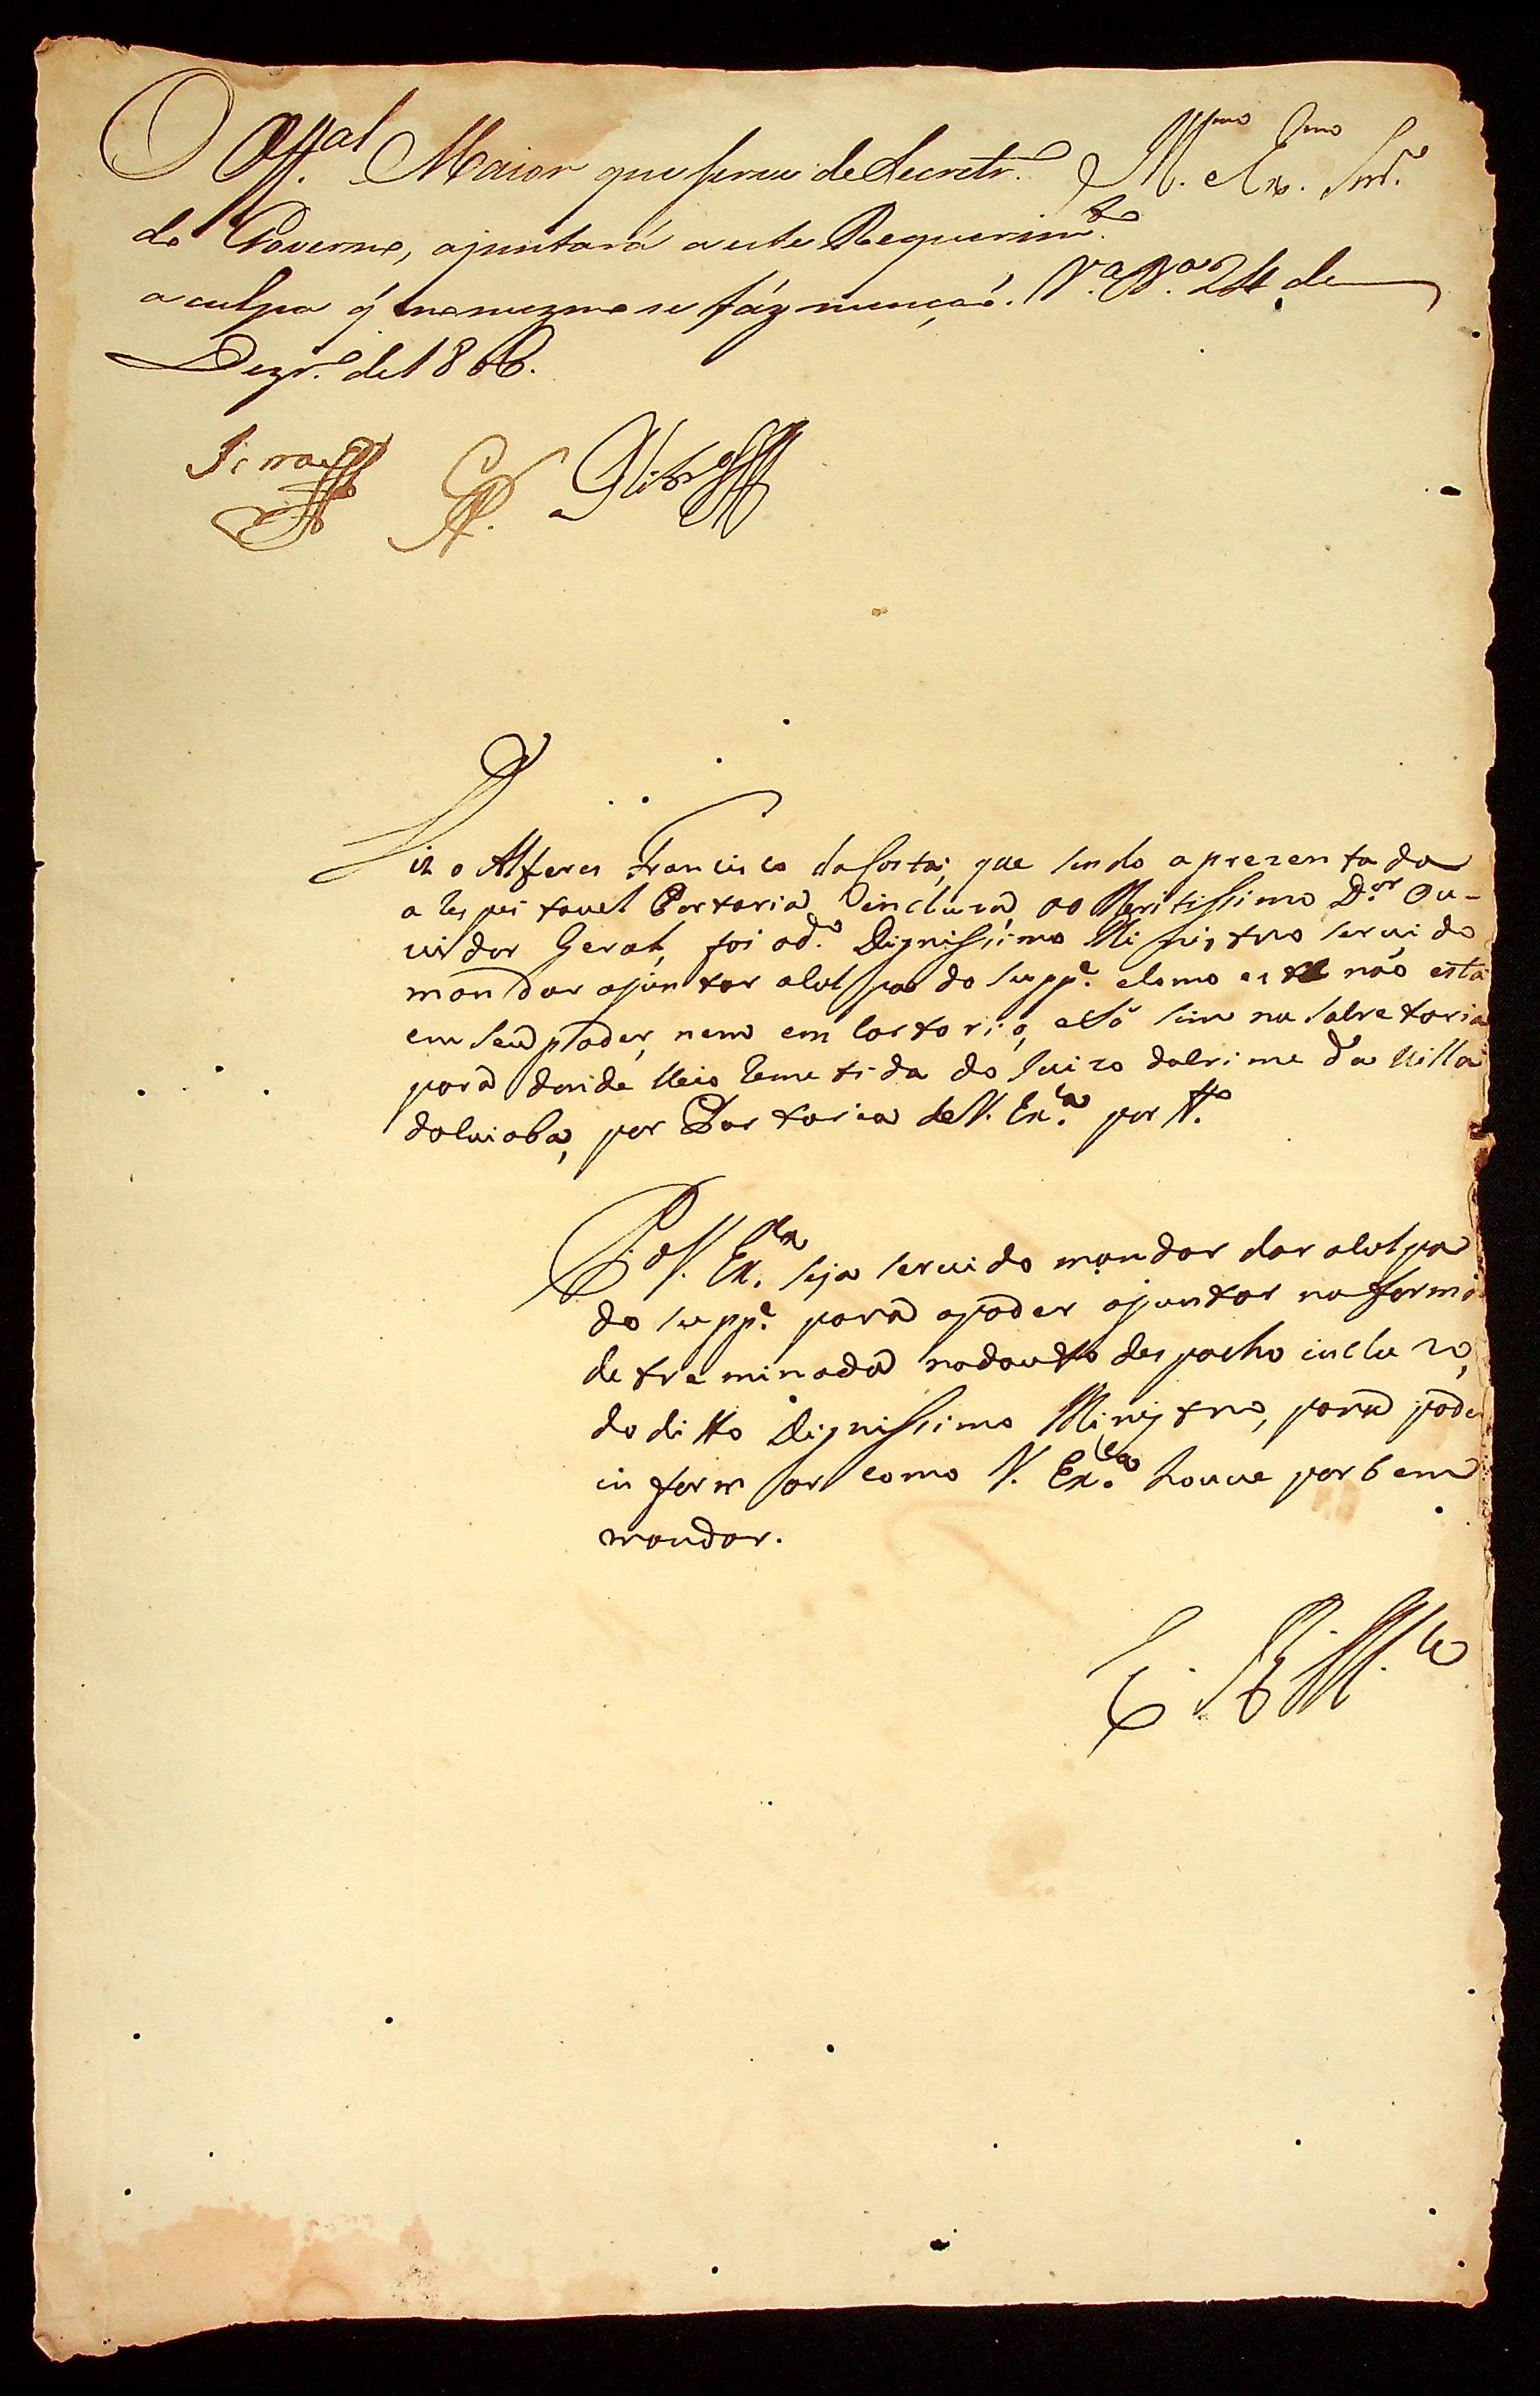 O Off.al Maior que serve de Secretr.o
do Governo, ajuntará a este Requerim.to
a culpa q̃ no mezmo se fáz mençaõ. V.a B.a 24 de
Dezr.o de 1806.
Ill.mo Ex.mo Snr.
Diz o Alferes Francisco da Costa, que sendo aprezentada
a Respeitavel Portaria incluza, ao Meritissimo D.or Ou-
vidor Geral, foi o d.o Dignissimo Ministro servido
mandar ajuntar a Culpa do supp.e e Como esta não está
em seu poder, nem em Cartorio, e Só sim na Sacretaria
para donde Veio Remetida do Juizo do Crime da Villa
do Cuiaba, por Portaria de V. Ex.ca por t.to
P. a V. Ex.cia seja servido mandar dar a Culpa
do supp.e para a poder ajuntar na forma
detreminada no douto despacho incluzo,
do ditto Dignissimo Ministro, para poder
informar como V. Ex.cia houve por bem
mandar.
E. R. M.ce